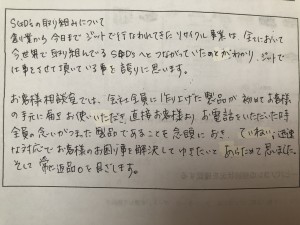 SGD'sの取り組みについて
創業から今日までジットで行なわれてきたリサイクル事業は、全において
今世界で取り組んでいるSGD'sへとつながっていたのがわかり、ジットで
仕事をさせて頂いている事を誇りに思います。
お客様相談室では、会社全員に作り上げた製品が初めてお客様
の手元に届きお使いいただき、直接お客様よりお電話をいただいた時
全員の思いがつまった製品であることを念頭におき、ていねい、迅速
な対応でお客様のお困り事を解決してゆきたいとあらためて思いました。
そして常に返品0を目ざします。